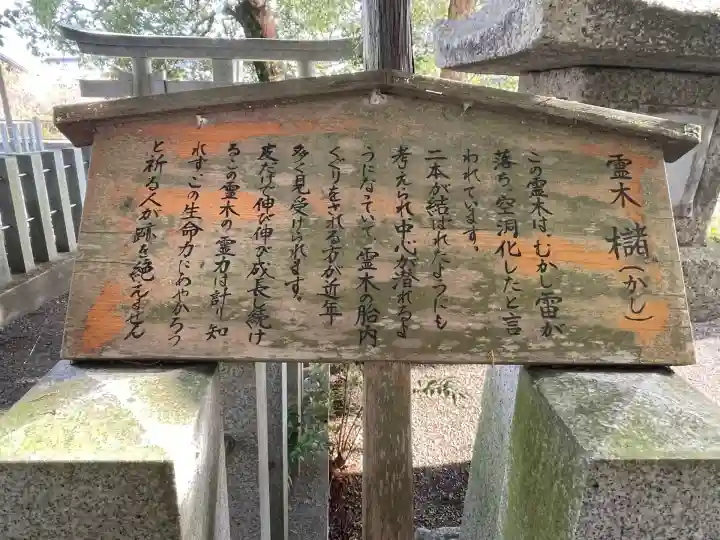 霊木 櫧(かし)
この霊木は、むかし雷が
落ち、空洞化したと言
われています。
二本が結ばれたようにも
考えられ中心が潜れるよ
うになっていて、霊木の胎内
くぐりをされる方が近年
多く見受けられます。
皮だけで伸び伸び成長し続け
るこの霊木の霊力は計り知
れず、この生命力にあやかろう
と祈る人が跡を絶えません